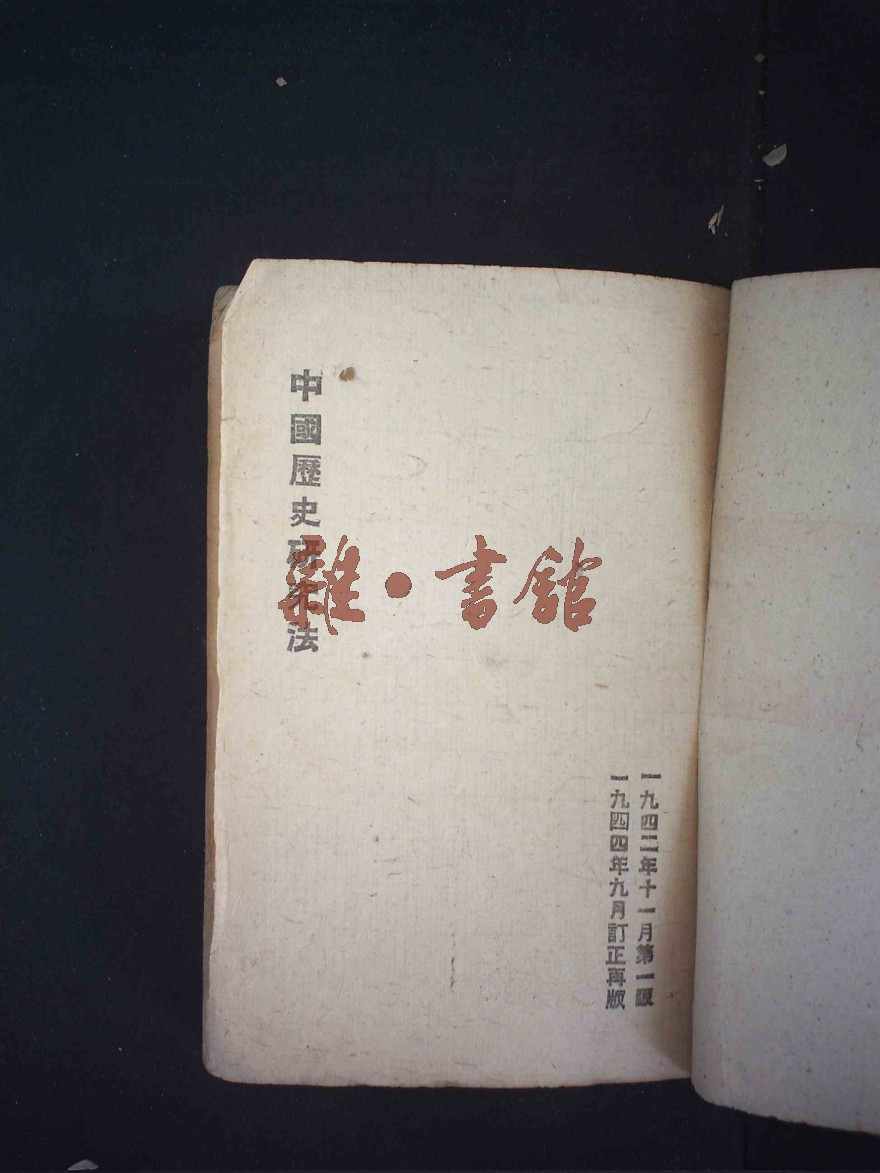 中國歷史研究法
雜·書館
一九四二年十一月第一版
一九四四年九月訂正再版